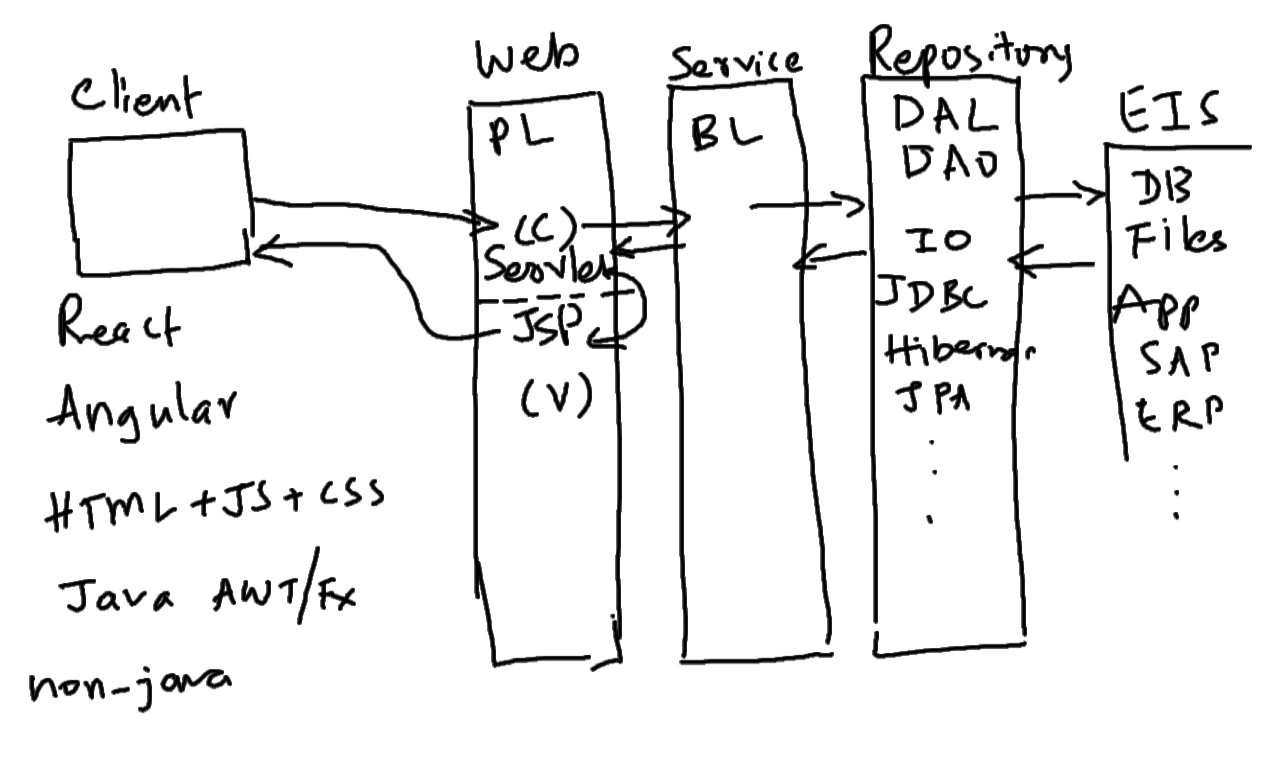 Client
React
Angular
HTML+JS+CSS
Java AWT/Fx
non-java
Web
PL
(C)
Servlet
JSP
(V)
Service
BL
Repository
DAL
DAO
IO
JDBC
Hibernar
JPA
EIS
DB
Files
App
SAP
ERP